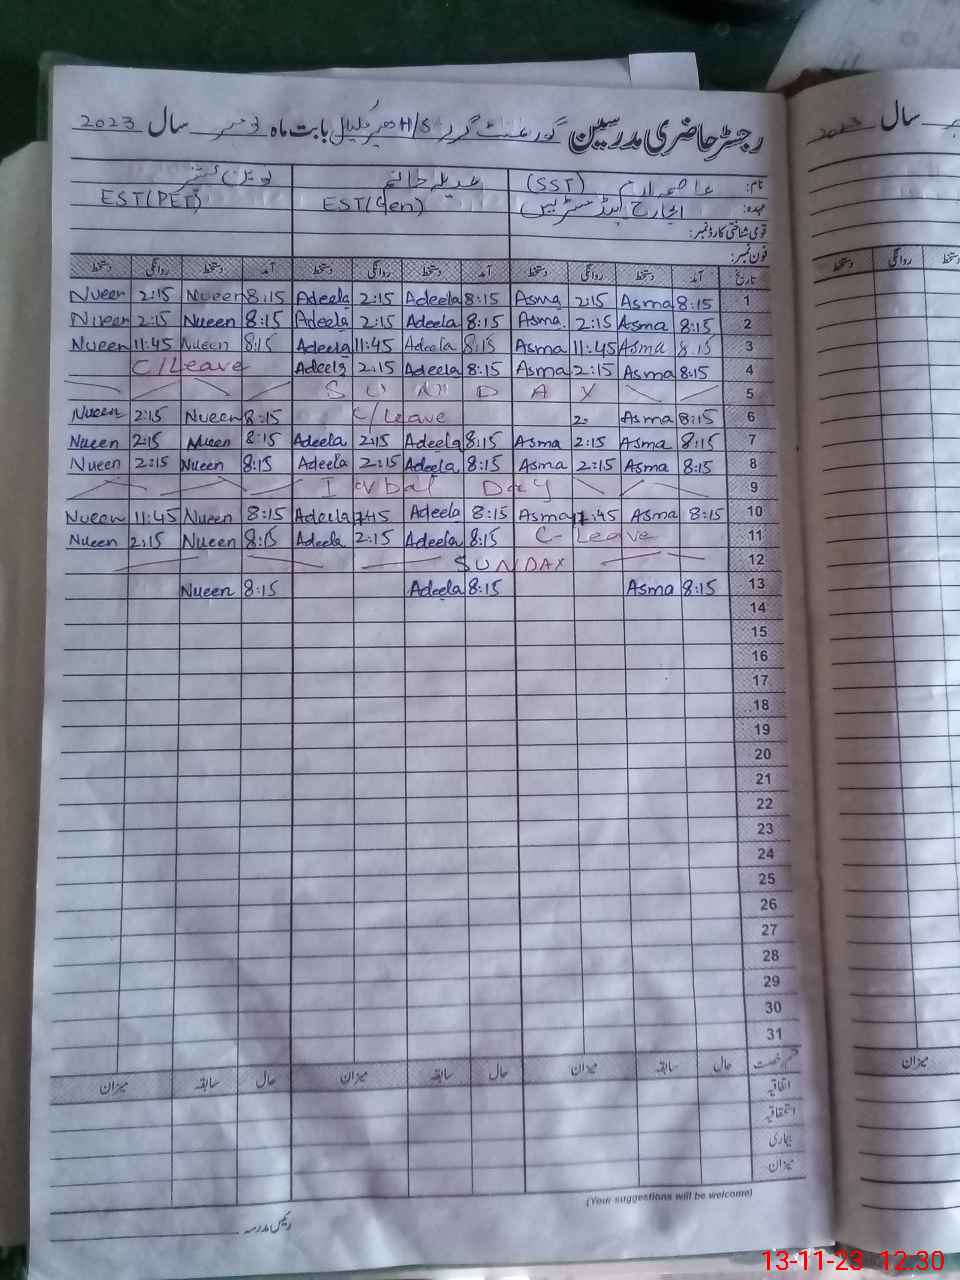 رجسٹر حاضری مدرسین گورنمنٹ گرلز H/S بابت ماہ نومبر سال 2023
نام: (SST)
عہدہ: انچارج ہیڈ مسٹریس EST(Gen) EST(PET)
قومی شناختی کارڈ نمبر:
فون نمبر:
تاریخ آمد دستخط روانگی دستخط آمد دستخط روانگی دستخط آمد دستخط روانگی دستخط
1 8:15 Asma 2:15 Asma 8:15 Adeela 2:15 Adeela 8:15 Nueen 2:15 Nueen
2 8:15 Asma 2:15 Asma 8:15 Adeela 2:15 Adeela 8:15 Nueen 2:15 Nueen
3 8:15 Asma 11:45 Asma 8:15 Adeela 11:45 Adeela 8:15 Nueen 11:45 Nueen
4 8:15 Asma 2:15 Asma 8:15 Adeela 2:15 Adeela C/Leave
5 SUNDAY
6 8:15 Asma 2. C/Leave 8:15 Nueen 2:15 Nueen
7 8:15 Asma 2:15 Asma 8:15 Adeela 2:15 Adeela 8:15 Nueen 2:15 Nueen
8 8:15 Asma 2:15 Asma 8:15 Adeela 2:15 Adeela 8:15 Nueen 2:15 Nueen
9 Iqbal Day
10 8:15 Asma Asma 8:15 Adeela Adeela 8:15 Nueen 11:45 Nueen
11 C-Leave 8:15 Adeela 2:15 Adeela 8:15 Nueen 2:15 Nueen
12 SUNDAY
13 8:15 Asma 8:15 Adeela 8:15 Nueen
14
15
16
17
18
19
20
21
22
23
24
25
26
27
28
29
30
31
قسم رخصت حال سابقہ میزان حال سابقہ میزان حال سابقہ میزان
اتفاقیہ
استحقاقیہ
بیماری
میزان
(Your suggestions will be welcome)
رئیس مدرسہ
سال 2023
دستخط روانگی
میزان
13-11-23 12:30